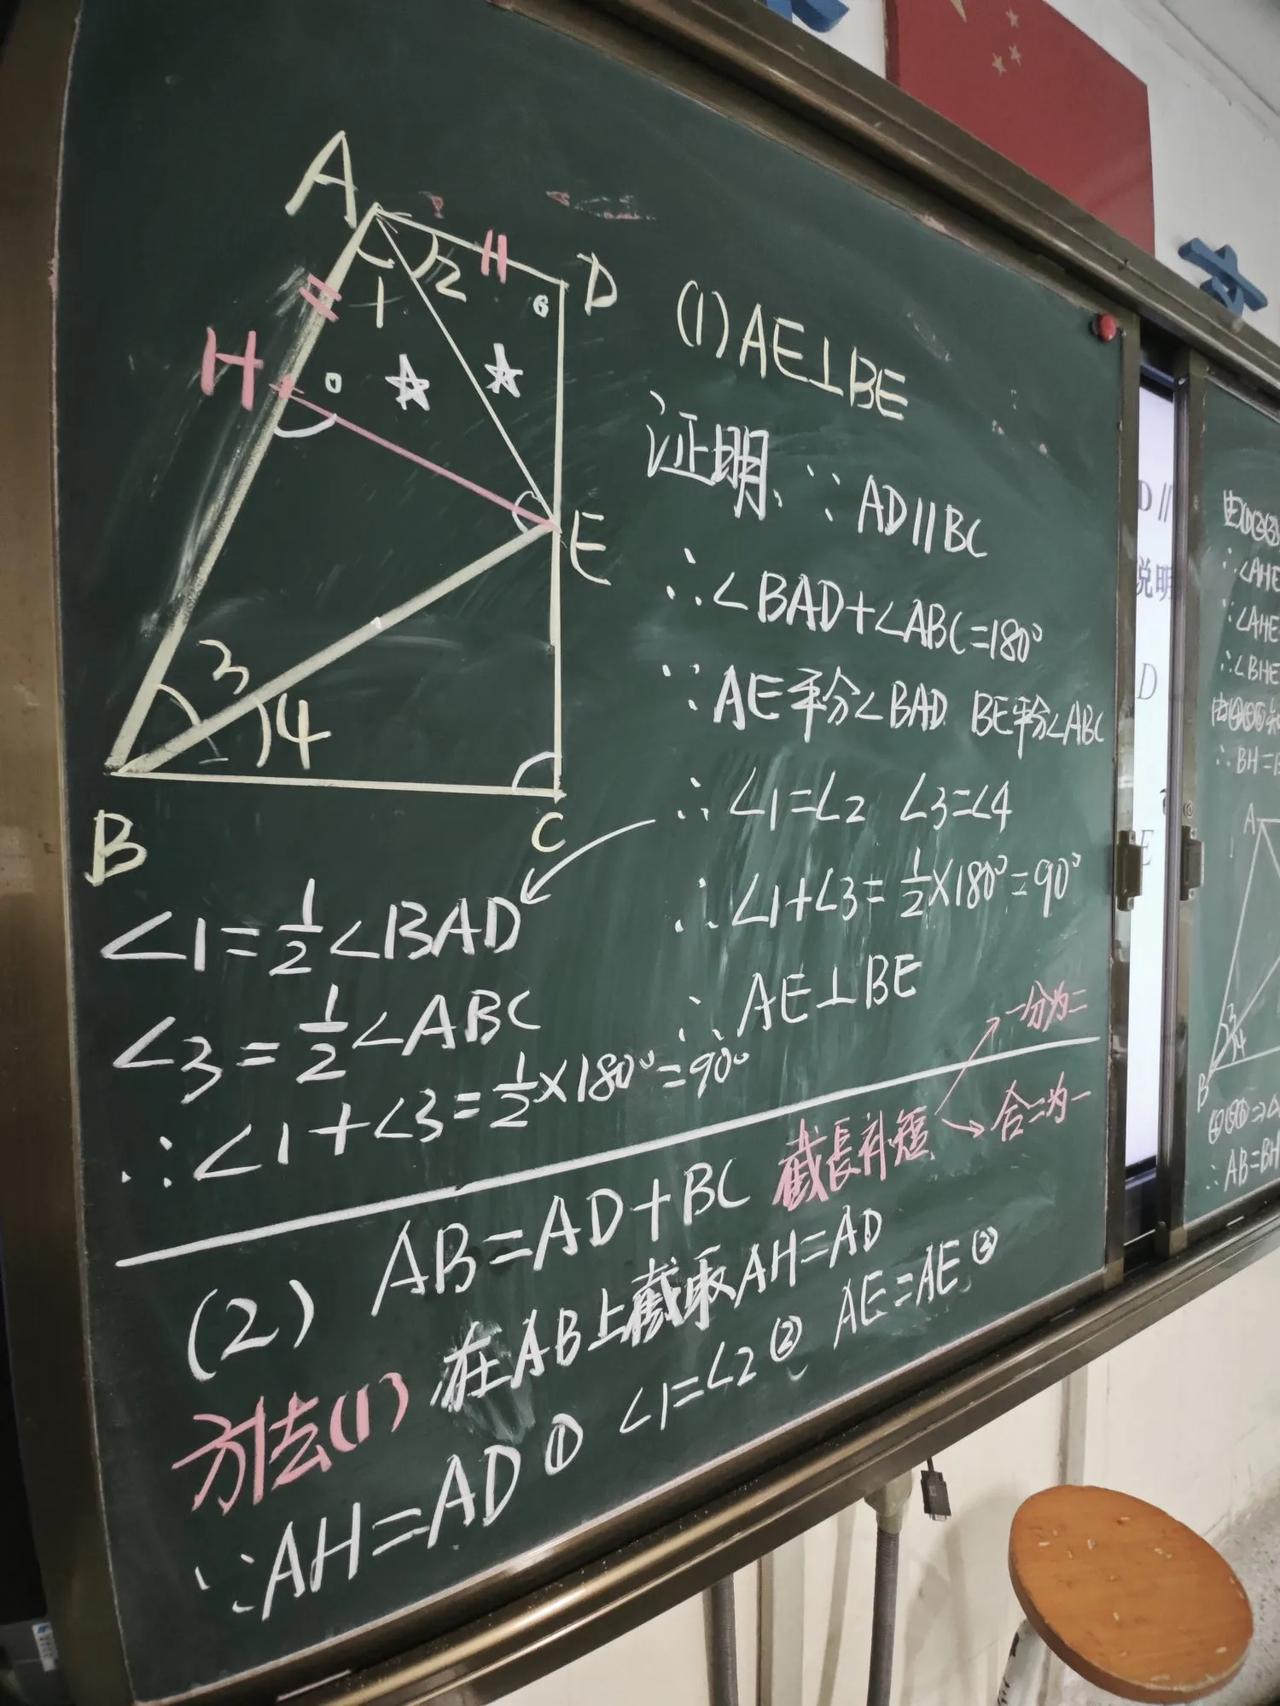 A
1
2
D
6
H
E
3
4
B
C
(1) AE⊥BE
证明、∵AD∥BC
∴∠BAD+∠ABC=180°
∵AE平分∠BAD BE平分∠ABC
∴∠1=∠2 ∠3=∠4
∴∠1+∠3=1/2×180°=90°
∴AE⊥BE
∠1=1/2∠BAD
∠3=1/2∠ABC
∴∠1+∠3=1/2×180°=90°
(2) AB=AD+BC 截長补短
一分为二
合二为一
方法(1) 在AB上截取AH=AD
∵AH=AD① ∠1=∠2② AE=AE③
D∥
说明
D
E
∴∠AHE
∵∠AHE
∴∠BHE
∴BH=
A
3
4
B
∴AB=BH